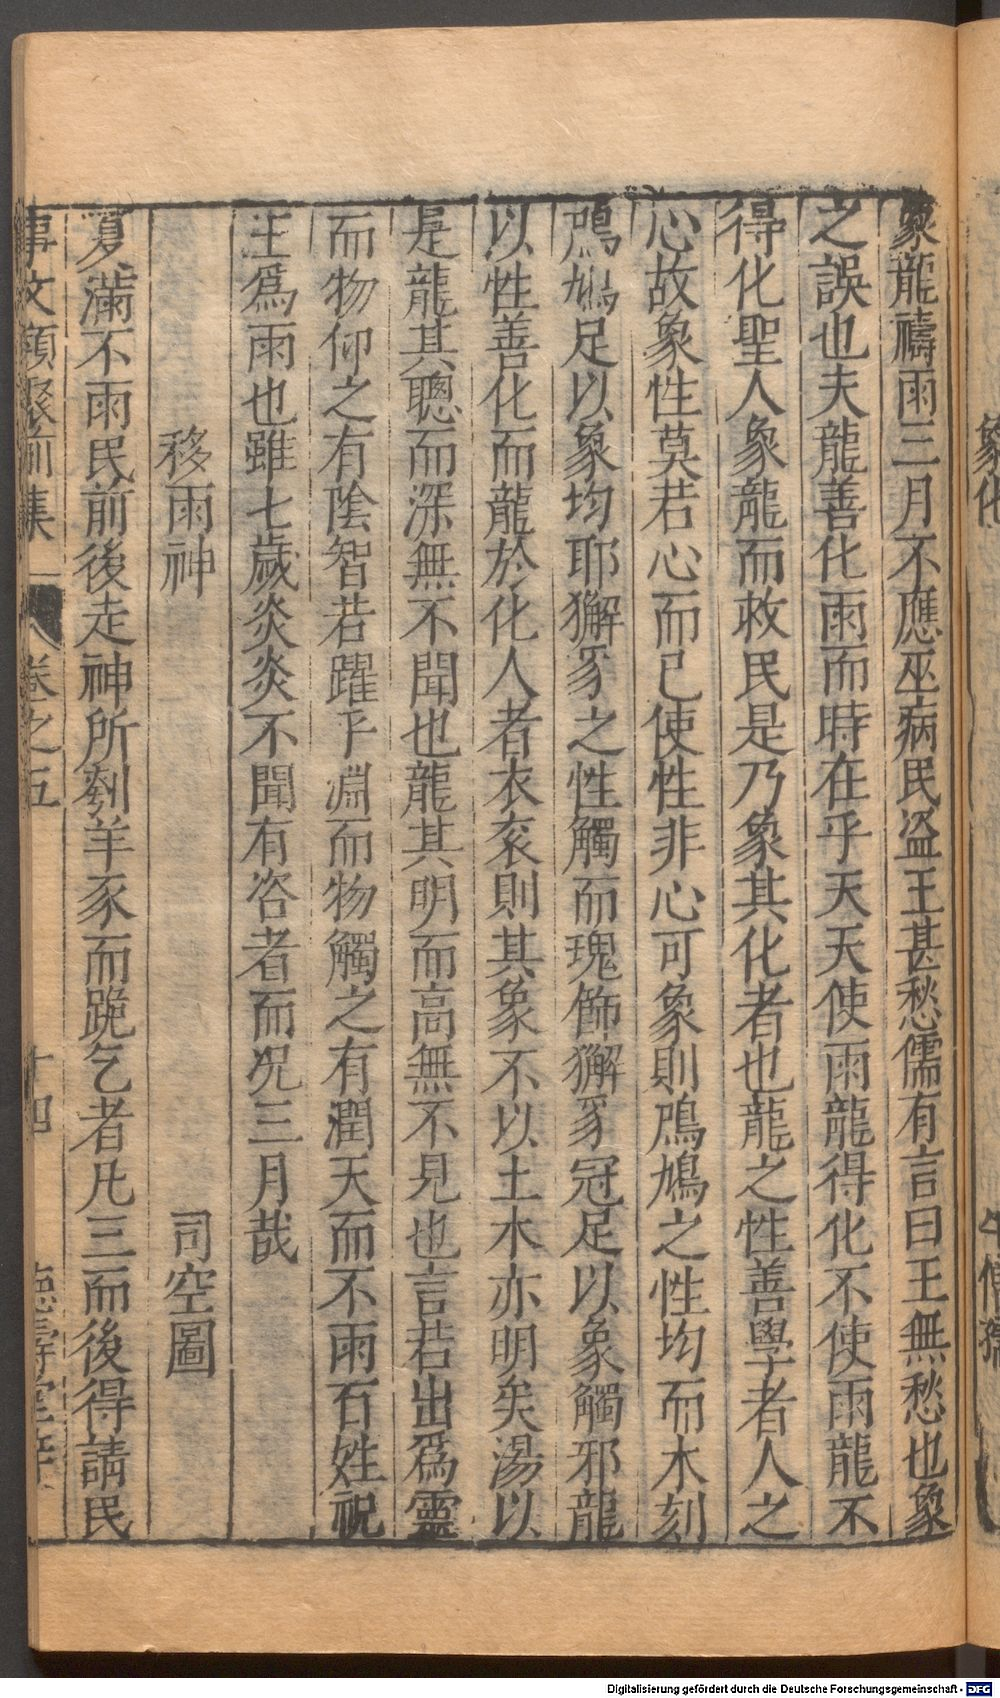 象化
牛僧孺
象龍禱雨三月不應巫病民盜王甚愁儒有言曰王無愁也象
之誤也夫龍善化雨而時在乎天天使雨龍得化不使雨龍不
得化聖人象龍而救民是乃象其化者也龍之性善學者人之
心故象性莫若心而已使性非心可象則鳲鳩之性均而木刻
鳲鳩足以象均耶獬豸之性觸而瑰飾獬豸冠足以象觸邪龍
以性善化而龍於化人者衣衮則其象不以土木亦明矣湯以
是龍其聰而深無不聞也龍其明而高無不見也言若出爲靈
而物仰之有陰智若躍乎淵而物觸之有潤天而不雨石姓祝
王爲雨也雖七歲炎炎不聞有咨者而况三月哉
移雨神
司空圖
夏滿不雨民前後走神所刲羊豕而跪乞者凡三而後得請民
事文類聚前集
卷之五
十四
德壽堂梓
Digitalisierung gefördert durch die Deutsche Forschungsgemeinschaft - DFG